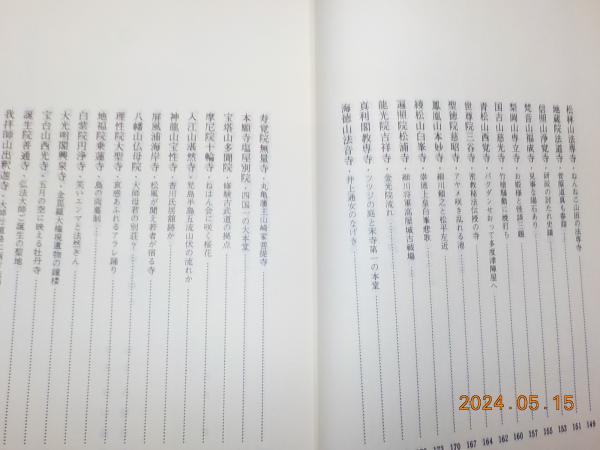 松林山法専寺・ねんねこ山田の法専寺 149
地蔵院法道寺・菅原道真も参詣 151
信照山浄覚寺・研説の討たれ史蹟 153
梵音山福成寺・見事な陽石あり 155
梨岡山専立寺・お姫様と怪談三題 157
国吉山慈光寺・竹槍騒動に焼打ち 160
青松山西覚寺・バクダンせおって多度津陣屋へ 162
世尊院三谷寺・密教秘法伝授の寺 164
聖徳院慈昭寺・アヤメ咲き乱れる池 167
鳳凰山本妙寺・細川頼之と松平左近 170
綾松山白峯寺・崇徳上皇白峯悲歌 173
遍照院松浦寺・細川将軍高屋城古戦場
龍光院吉祥寺・金光院流れ
真利閣教専寺・ツツジの庭と末寺第一の本堂
海徳山法音寺・井上通女のなげき
寿覚院無量寺・丸亀藩主山崎家菩提寺
本願寺塩屋別院・四国一の大本堂
宝塔山多聞院・修験古武道の拠点
摩尼院十輪寺・ねはん会に咲く桜花
入江山湛然寺・児島半島五流山伏の流れか
神龍山宝性寺・香川氏居館跡か
屏風浦海岸寺・松風が聞え若者が宿る寺
八幡山仏母院・大師母君の別荘？
理性院大聖寺・哀感あふれるアラレ踊り
地福院乗蓮寺・島の両墓制
白紫院円浄寺・笑いエンマと法然さん
大光明閣興泉寺・金毘羅大権現遺物の鐘楼
宝台山西光寺・五月の空に映える牡丹寺
誕生院善通寺・弘法大師ご誕生の聖地
我拝師山出釈迦寺・大師
2024.05.15